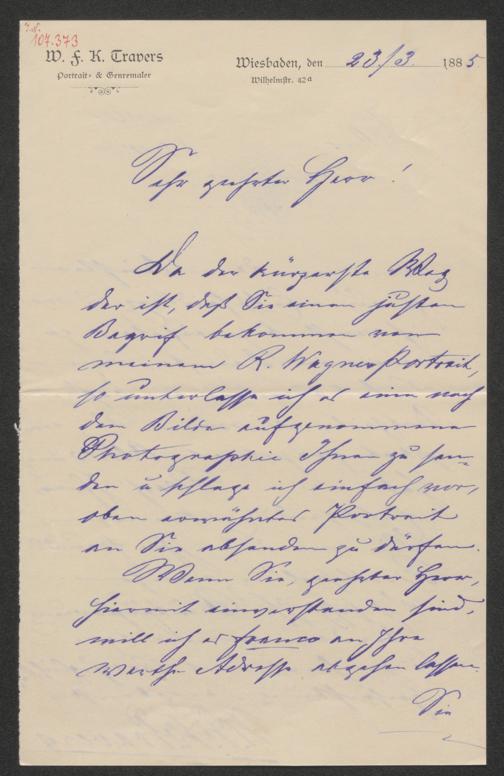 J.N.
107.373
W. F. K. Travers
Portrait- & Genremaler
Wiesbaden, den 23/3. 1885.
Wilhelmstr. 42a
Sehr geehrter Herr!
Da der kürzerste Weg
der ist, daß Sie einen justen
Begrif bekommen von
meinem R. Wagner Portrait,
so unterlasse ich es eine nach
dem Bilde aufgenommene
Photographie Ihnen zu sen-
den u schlage ich einfach vor,
oben erwähntes Portrait
an Sie absenden zu dürfen.
Wenn Sie, geehrter Herr,
hiermit einverstanden sind,
will ich es franco an Ihre
werthe Adresse abgehen lassen.
Sie